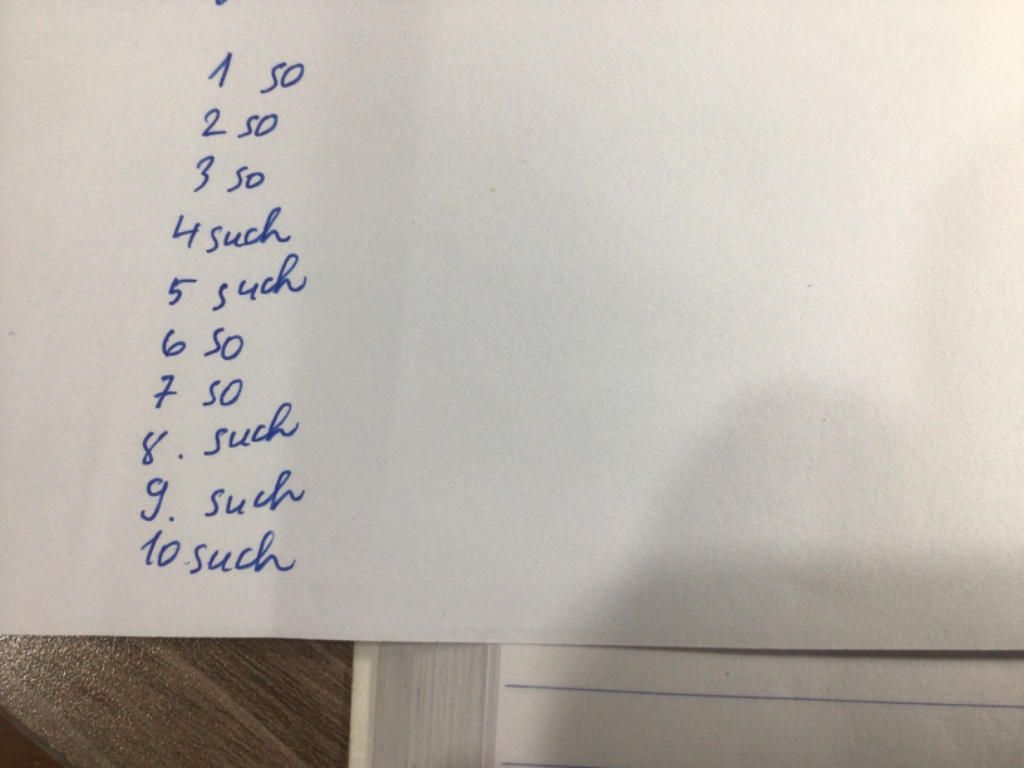 1 so
2 so
3 so
4 such
5 such
6 so
7 so
8. such
9. such
10. such